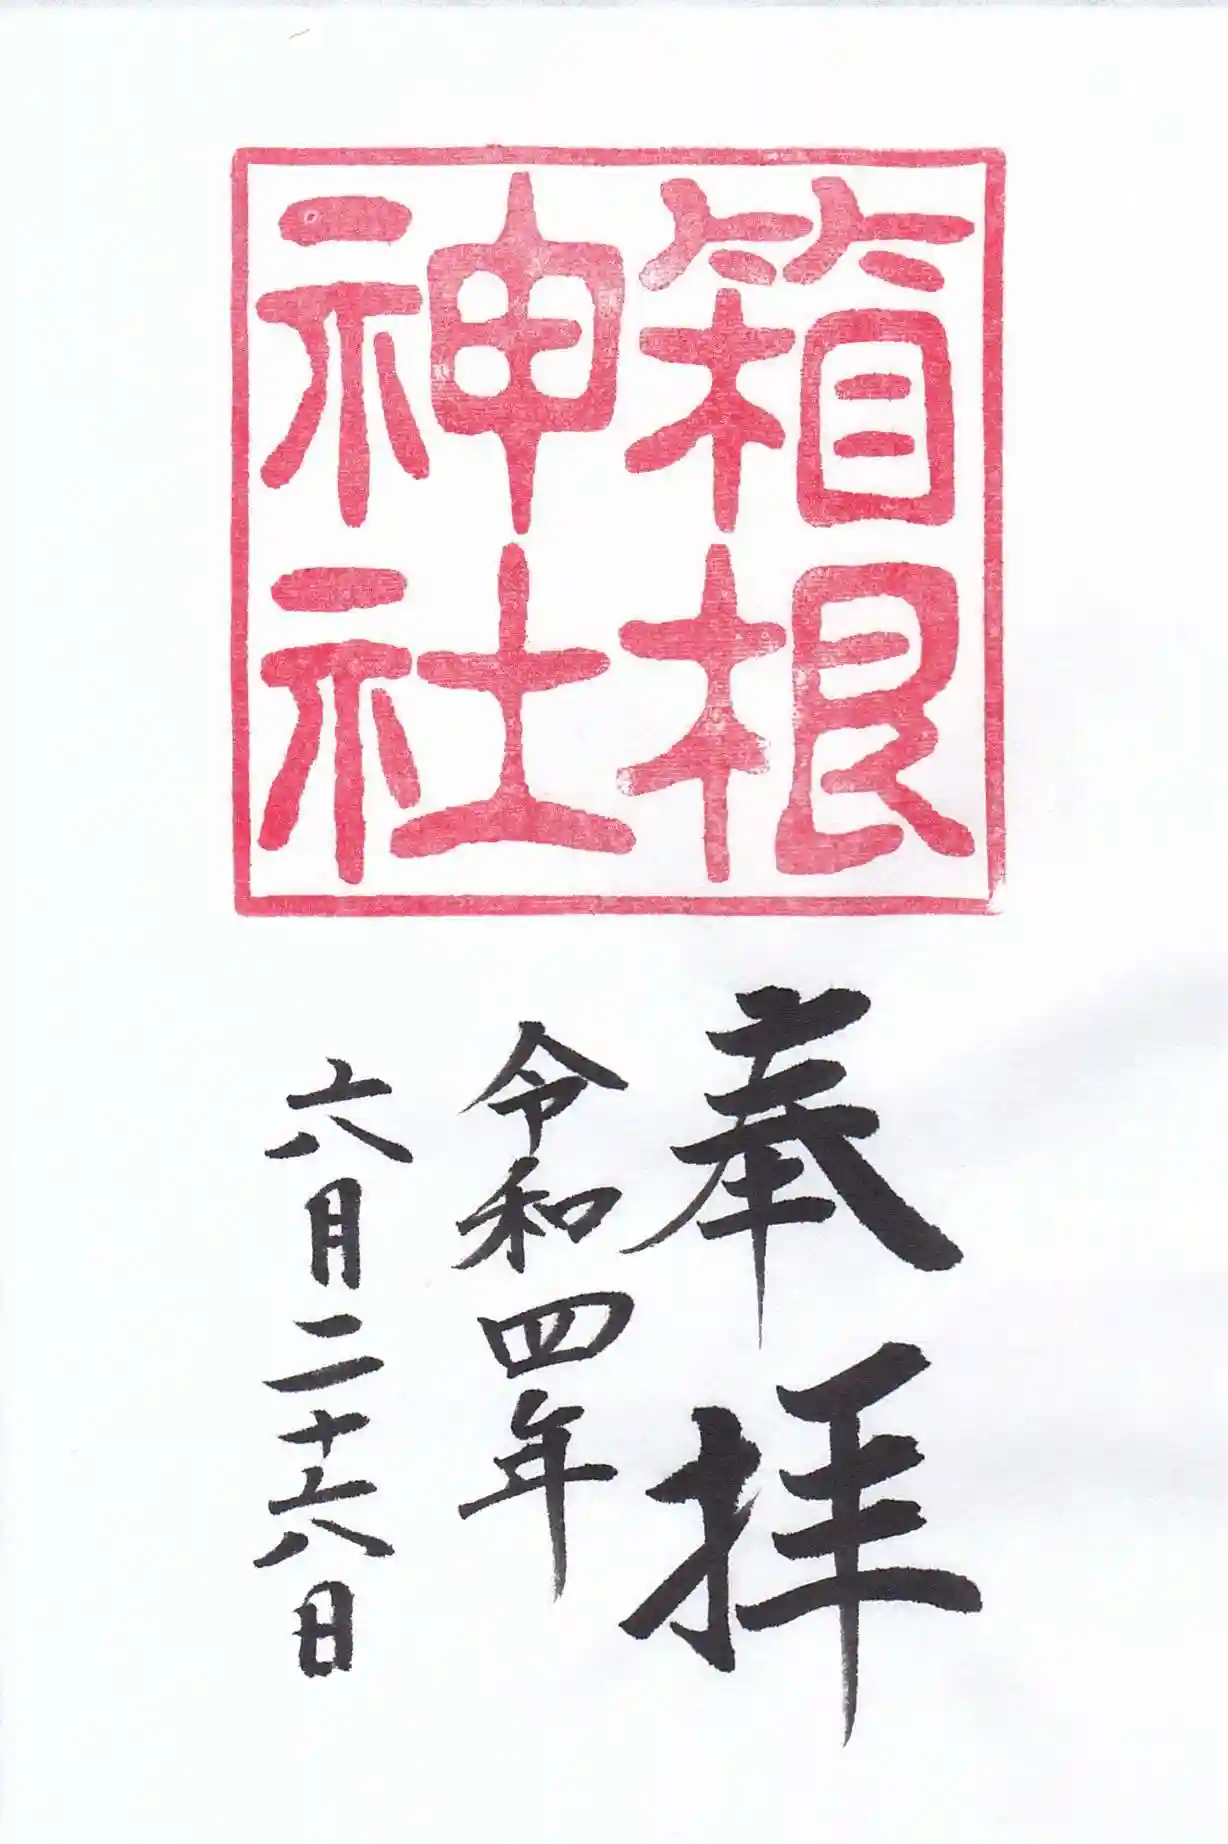 箱根
神社
奉拝
令和四年
六月二十六日